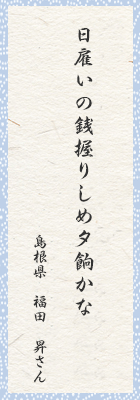 日雇いの銭握りしめ夕餉かな
島根県 福田 昇さん